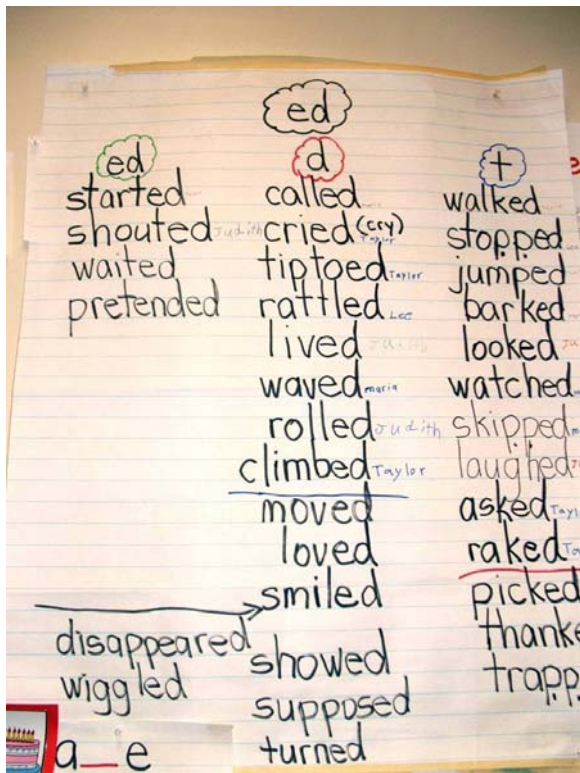 ed
ed
started
shouted Judith
waited
pretended
disappeared
wiggled
a__e
d
called
cried (cry) Taylor
tiptoed Taylor
rattled Lee
lived Judith
waved maria
rolled Judith
climbed Taylor
moved
loved
smiled
showed
supposed
turned
t
walked
stopped
jumped
barked
looked
watched
skipped
laughed
asked
raked
picked
thanke
trapp